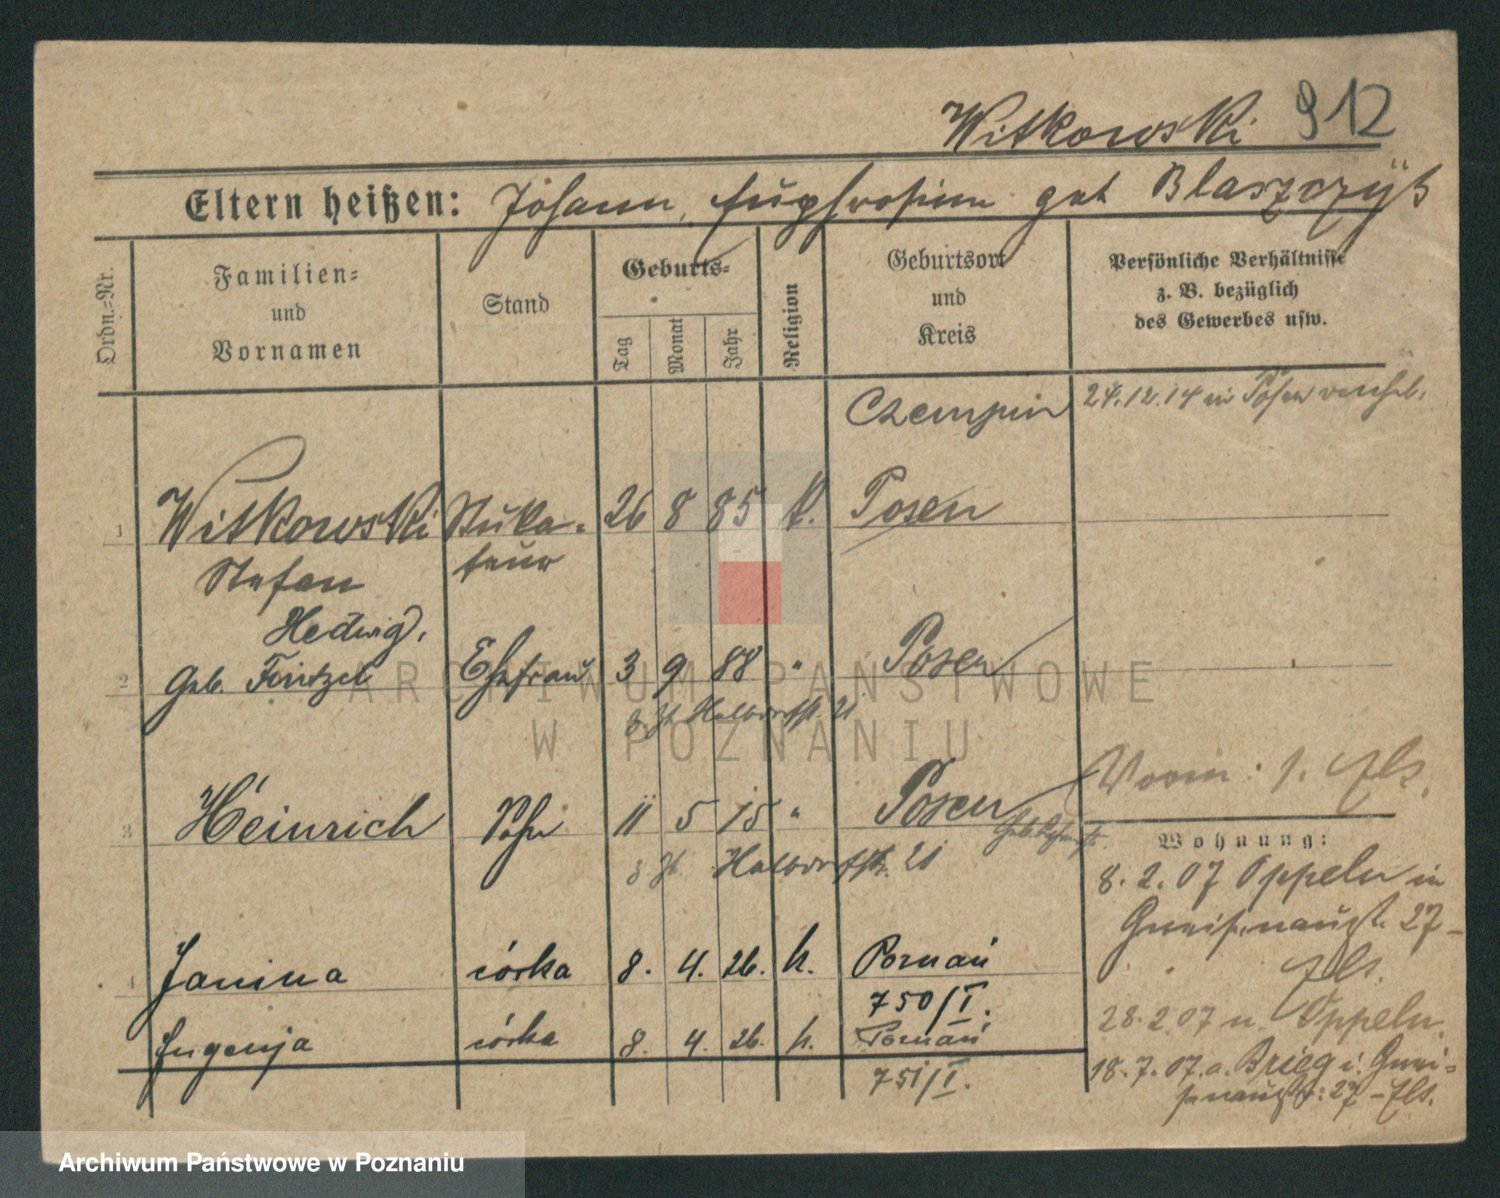 Witkowski 912
Eltern heißen: Johann, Euphrosine geb. Blaszczyk
Ordn.-Nr.
Familien-
und
Vornamen
Stand
Geburts-
Tag
Monat
Jahr
Religion
Geburtsort
und
Kreis
Persönliche Verhältnisse
z. B. bezüglich
des Gewerbes usw.
Czempin
24.12.14 in Posen verehel.
1 Witkowski Stuka- 26 8 85 k. Posen
Stefan teur
Hedwig,
2 geb. Ehefrau 3 9 88 " Posen
z. Zt. Halbdorfstr. 21
Vorm: 1. Els.
3 Heinrich Sohn 11 5 15 " Posen
z. Zt. Halbdorfstr. 21
Wohnung:
8. 2. 07 Oppeln in
Gneisenaustr. 27-
Els.
4 Janina córka 8. 4. 26. k. Poznań
750/I.
Eugenja córka 8. 4. 26. k. Poznań
751/I.
28.2.07 n. Oppeln.
18.7.07. a. Brieg i. Gnei-
senaustr: 27 - Els.
ARCHIWUM PAŃSTWOWE
W POZNANIU
Archiwum Państwowe w Poznaniu